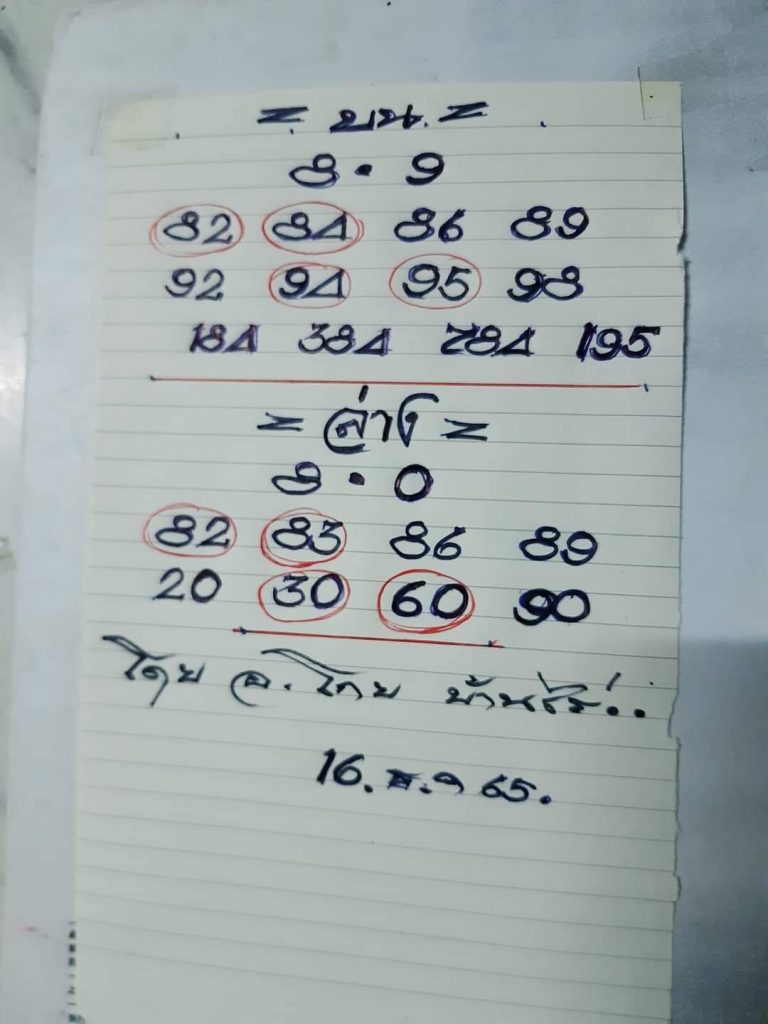 = บน =
8 • 9
82 84 86 89
92 94 95 98
184 384 784 195
= ล่าง =
8 • 0
82 83 86 89
20 30 60 90
โดย อ. โกย บ้านไร่..
16. 65.